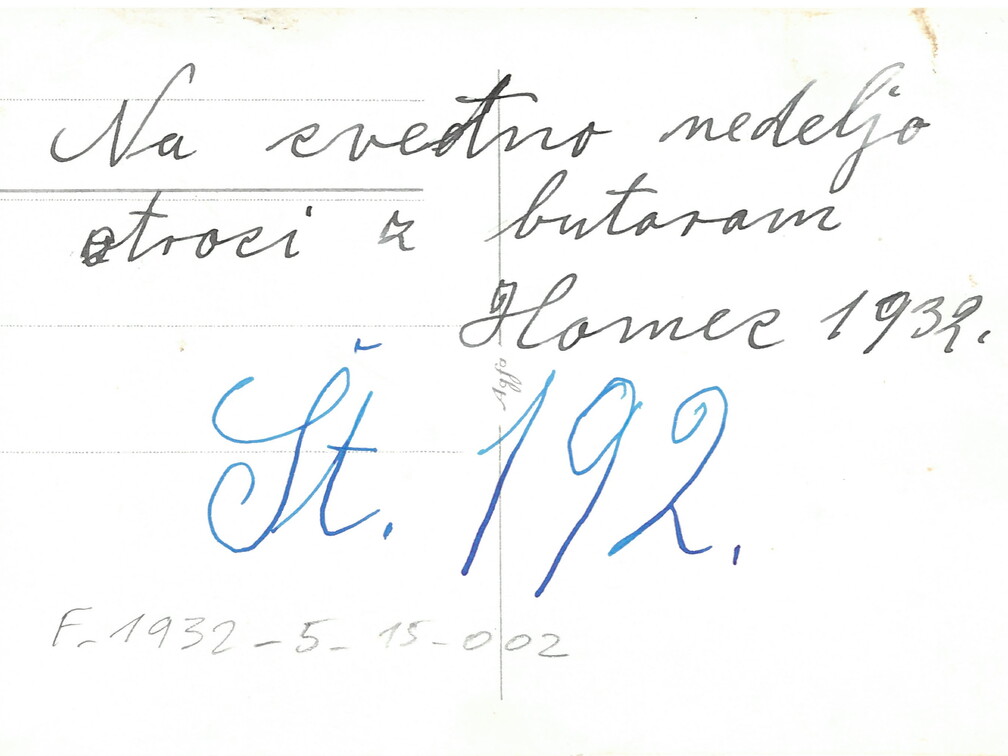 Na cvetno nedeljo
otroci z butaram
Homec 1932.
Agfa
Št. 192.
F-1932-5-15-002